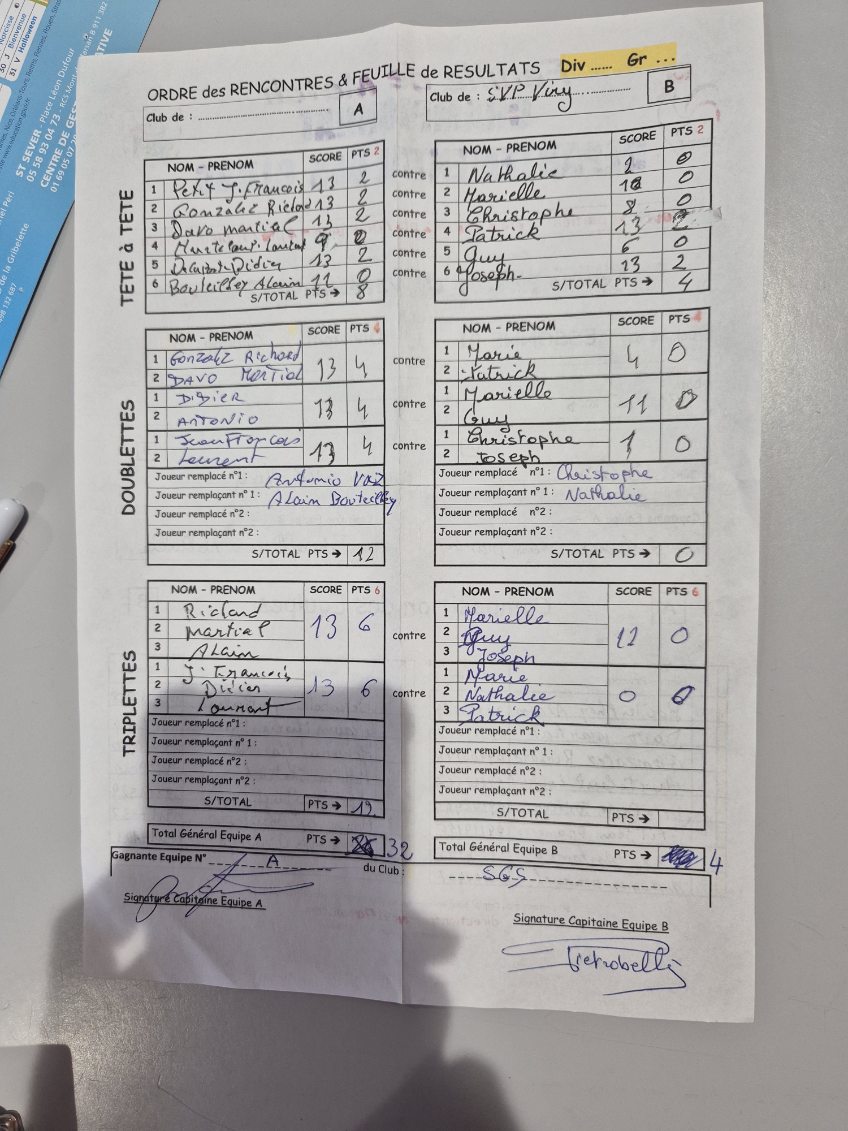 30 J Bienvenue
31 V Halloween
ST SEVER - Place Léon Dufour
05 58 93 04 73
CENTRE DE GEST
de la Gribelette
ORDRE des RENCONTRES & FEUILLE de RESULTATS Div ...... Gr ...
Club de : ................................ A
Club de : SVP Viry B
TETE à TETE
NOM - PRENOM SCORE PTS 2
1 Petit J. Francois 13 2
2 Gonzalez Richard 13 2
3 Davo Martial 13 2
4 Laurent 9 0
5 Didier 13 2
6 Bouteilley Alain 11 0
S/TOTAL PTS → 8
contre
contre
contre
contre
contre
contre
NOM - PRENOM SCORE PTS 2
1 Nathalie 2 0
2 Marielle 0
3 Christophe 8 0
4 Patrick 13 2
5 Guy 6 0
6 Joseph 13 2
S/TOTAL PTS → 4
DOUBLETTES
NOM - PRENOM SCORE PTS 4
1 Gonzalez Richard
2 DAVO Martial 13 4
1 DIDIER
2 ANTONIO 13 4
1 Jean François
2 Laurent 13 4
Joueur remplacé n°1 : Antonio Vaz
Joueur remplaçant n° 1 : Alain Bouteilley
Joueur remplacé n°2 :
Joueur remplaçant n°2 :
S/TOTAL PTS → 12
contre
contre
contre
NOM - PRENOM SCORE PTS 4
1 Marie
2 Patrick 4 0
1 Marielle
2 Guy 11 0
1 Christophe
2 Joseph 1 0
Joueur remplacé n°1 : Christophe
Joueur remplaçant n° 1 : Nathalie
Joueur remplacé n°2 :
Joueur remplaçant n°2 :
S/TOTAL PTS → 0
TRIPLETTES
NOM - PRENOM SCORE PTS 6
1 Richard
2 Martial 13 6
3 ALAIN
1 J. Francois
2 Didier 13 6
3 Laurent
Joueur remplacé n°1 :
Joueur remplaçant n° 1 :
Joueur remplacé n°2 :
Joueur remplaçant n°2 :
S/TOTAL PTS → 12
contre
contre
NOM - PRENOM SCORE PTS 6
1 Marielle
2 Guy 12 0
3 Joseph
1 Marie
2 Nathalie 0 0
3 Patrick
Joueur remplacé n°1 :
Joueur remplaçant n° 1 :
Joueur remplacé n°2 :
Joueur remplaçant n°2 :
S/TOTAL PTS →
Total Général Equipe A PTS → 32
Total Général Equipe B PTS → 4
Gagnante Equipe N° A du Club : SGS
Signature Capitaine Equipe A
Signature Capitaine Equipe B
Pietrobelli